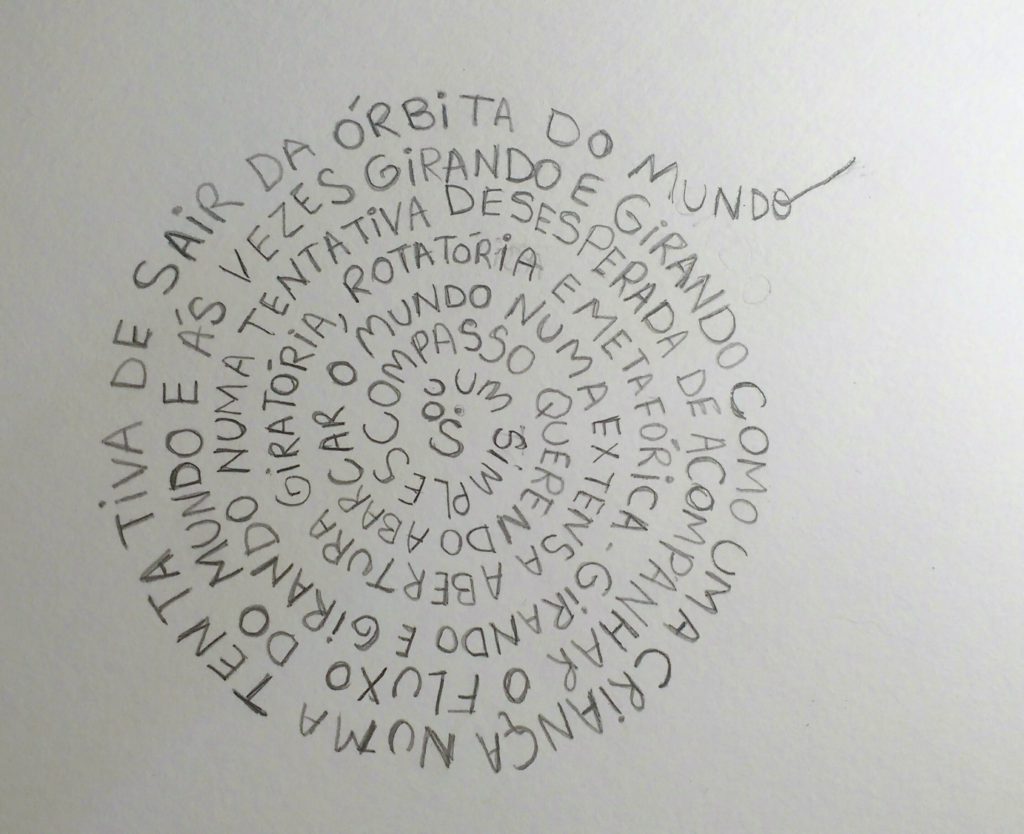 SOU UM SiMPLES COMPASSO QUERENDO ABARCAR O MUNDO NUMA EXTENSA ABERTURA GiRATÓRiA, ROTATÓRiA E METAFÓRiCA. GiRANDO E GiRANDO NUMA TENTATiVA DESESPERADA DE ACOMPANHAR O FLUXO DO MUNDO E ÁS VEZES GiRANDO E GiRANDO COMO UMA CRiANÇA NUMA TENTATiVA DE SAiR DA ÓRBiTA DO MUNDO